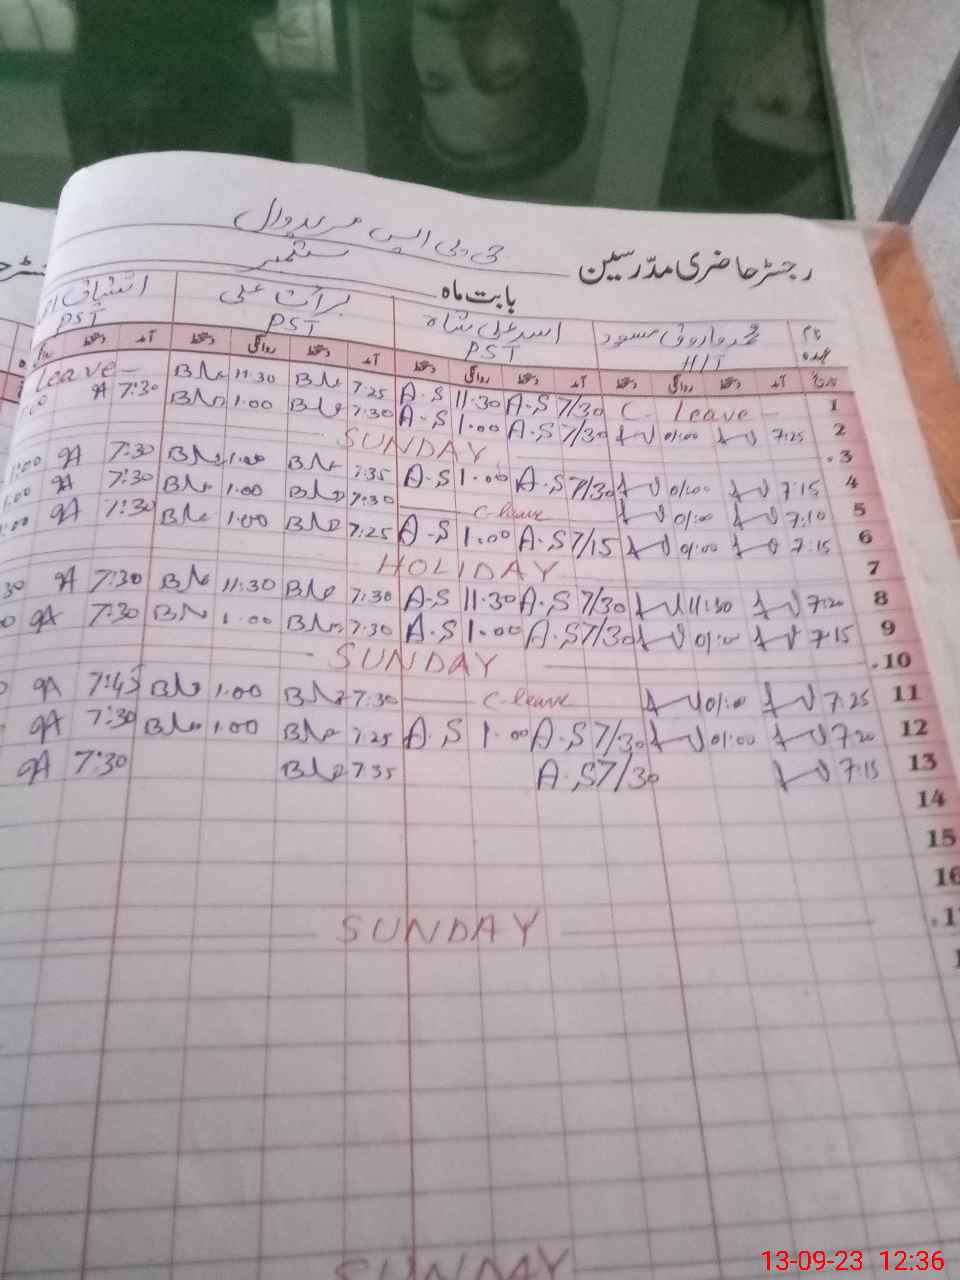 جی پی ایس مریدوال
رجسٹر حاضری مدرسین
بابت ماہ ستمبر
نام محمد فاروق مسعود اسد علی شاہ برأت علی
عہدہ HIT PST PST PST
تاریخ آمد دستخط روانگی دستخط آمد دستخط روانگی دستخط آمد دستخط روانگی دستخط آمد دستخط
1 C. Leave - 7/30 A.S 11.30 A.S 7.25 11.30 Leave -
2 7:25 01:00 7/30 A.S 1.00 A.S 7:30 1.00 7:30
.3 SUNDAY
4 7:15 01:00 7/30 A.S 1.00 A.S 7:35 1.00 7:30
5 7:10 01:00 C-leave 7:30 1.00 7:30
6 7:15 01:00 7/15 A.S 1.00 A.S 7:25 1.00 7:30
7 HOLIDAY
8 7:20 11:30 7/30 A.S 11.30 A.S 7:30 11:30 7:30
9 7:15 01:00 7/30 A.S 1.00 A.S 7:30 1.00 7:30
.10 SUNDAY
11 7:25 01:00 C-leave 7:30 1.00 7:45
12 7:20 01:00 7/30 A.S 1.00 A.S 7:25 1.00 7:30
13 7:15 7/30 A.S 7:35 7:30
14
15
16
SUNDAY
SUNDAY
13-09-23 12:36